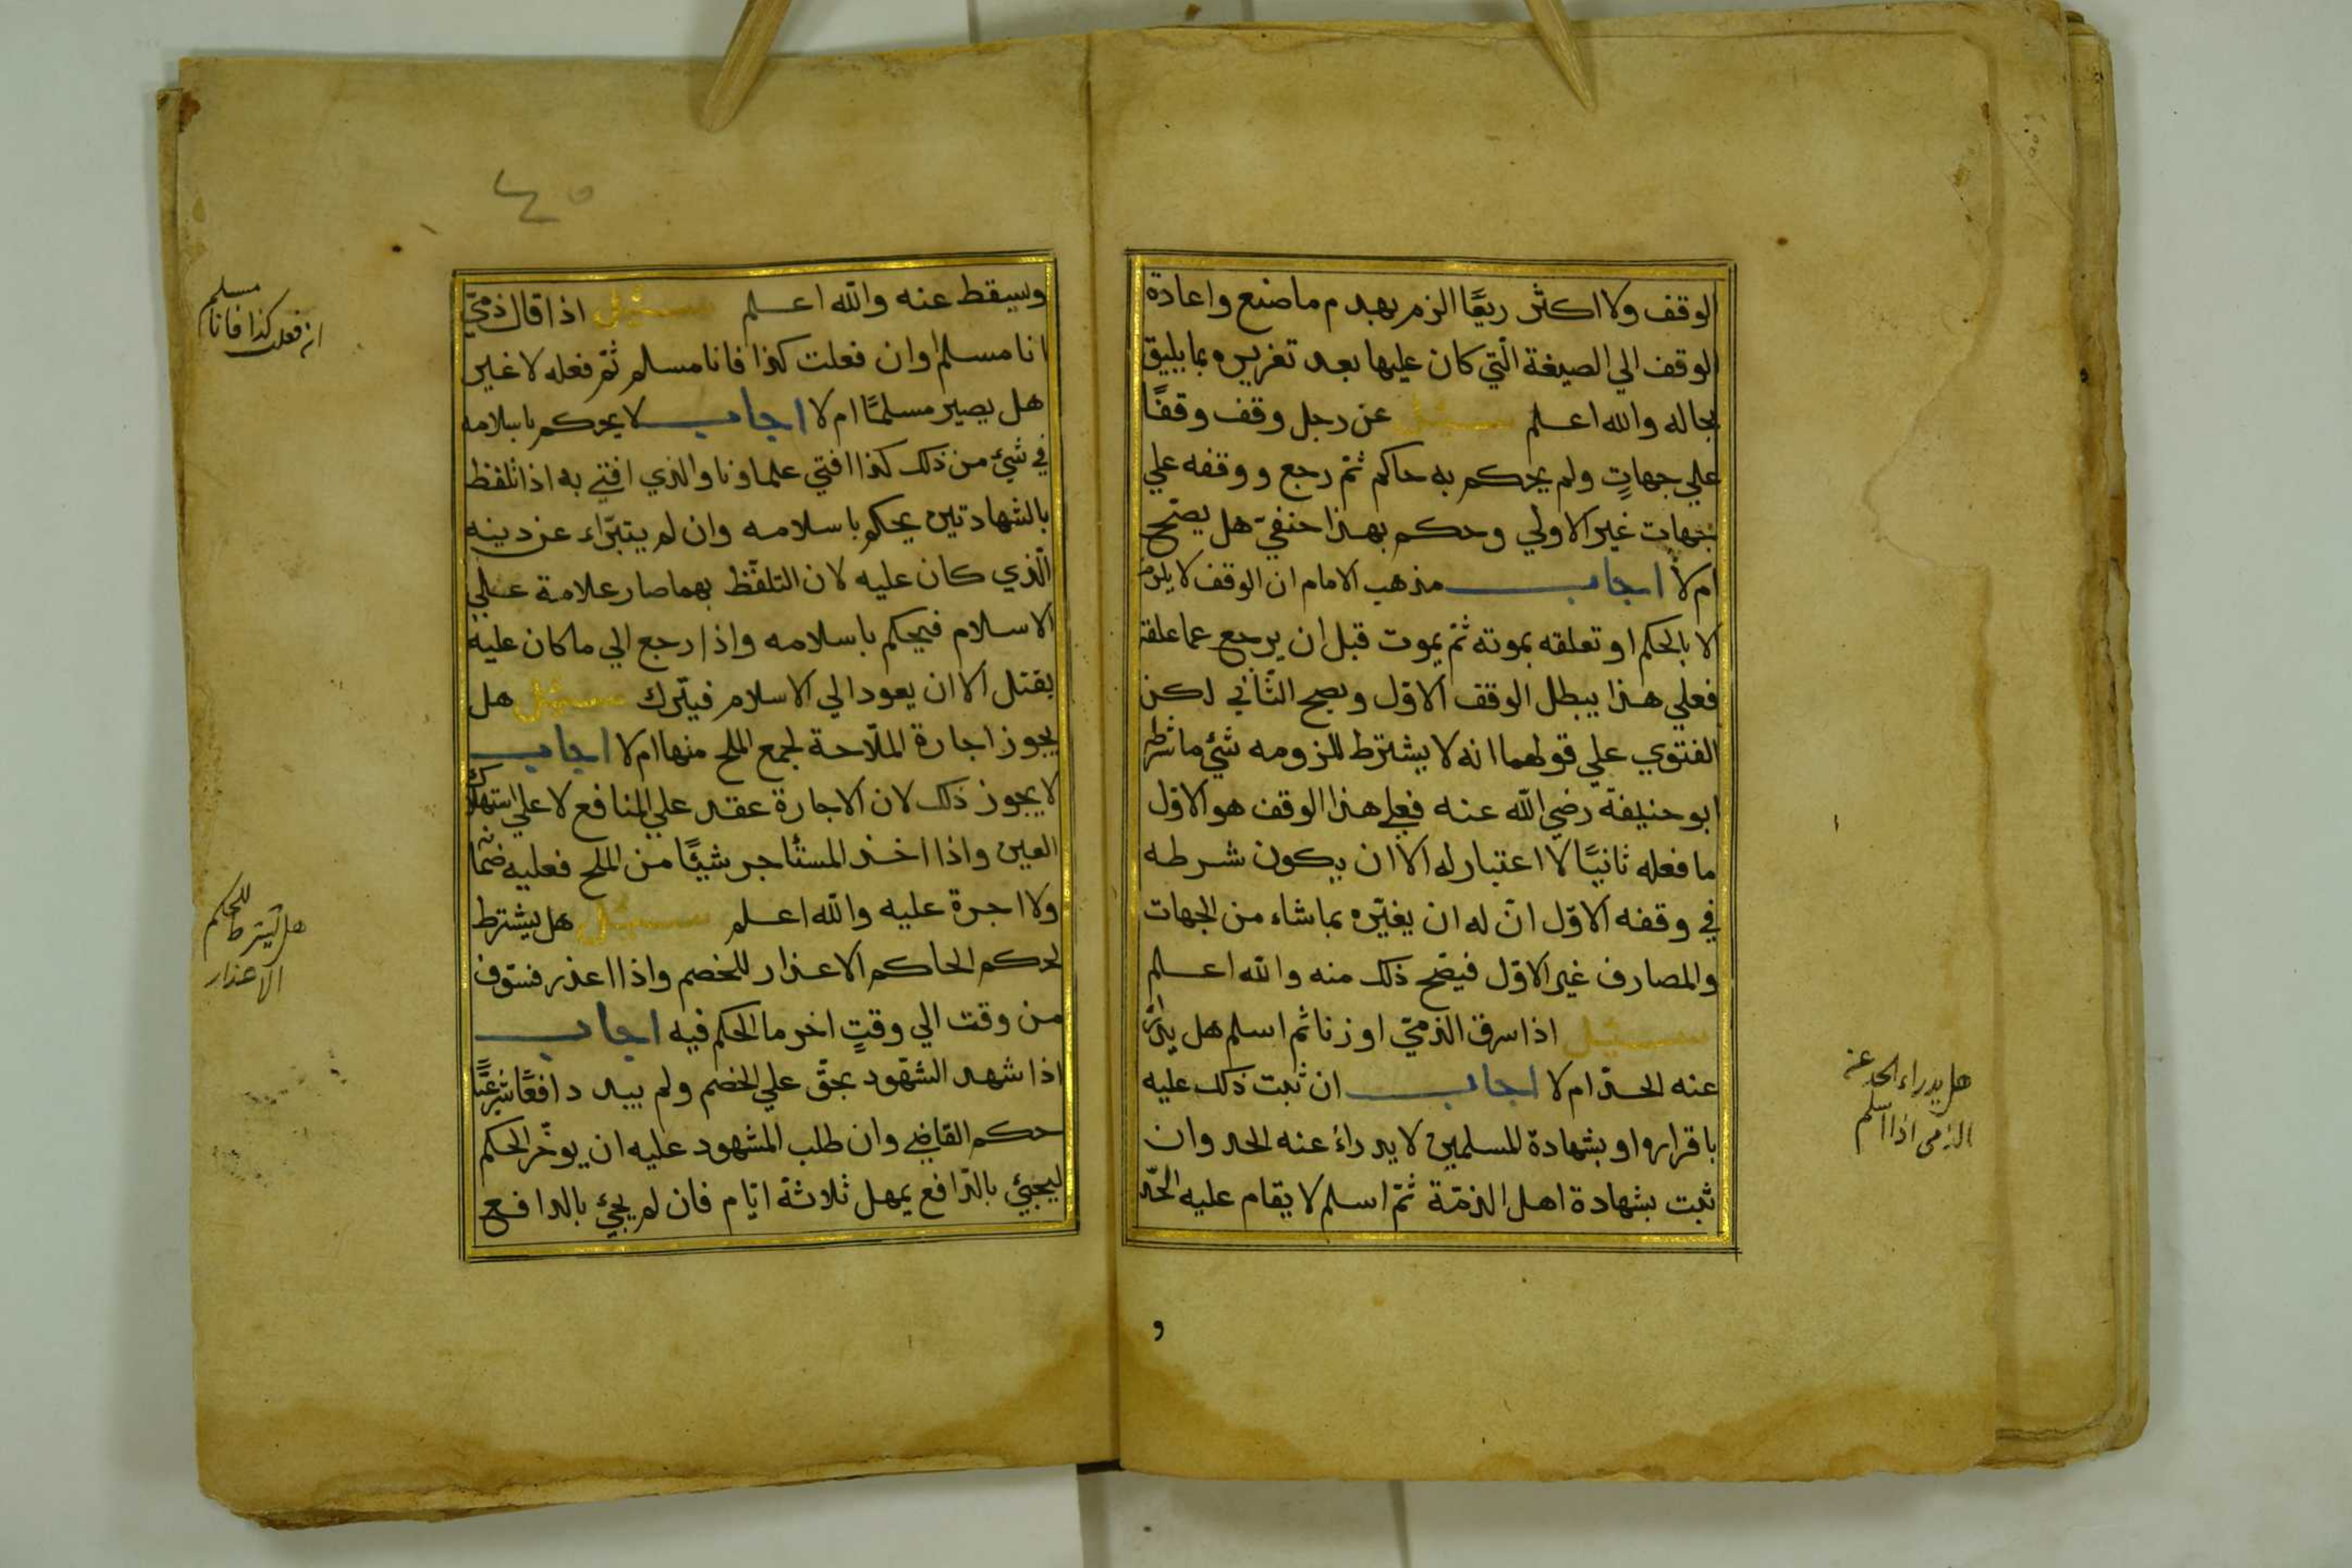 الوقف ولا اكثر ريعًا الزم بهدم ما صنع واعادة
الوقف الي الصيغة الّتي كان عليها بعد تعزيره بما يليق
بحاله والله اعلم سئل عن رجل وقف وقفًا
علي جهاتٍ ولم يحكم به حاكم ثمّ رجع ووقفه علي
جهات غير الاولي وحكم بهذا حنفيّ هل يصحّ
ام لا اجاب مذهب الامام ان الوقف لا يلزم
الا بالحكم او تعلقه بموته ثمّ يموت قبل ان يرجع عما علقه
فعلي هذا يبطل الوقف الاوّل وبصح الثّاني لكن
الفتوي علي قولهما انه لا يشترط للزومه شئ ما شرطه
ابو حنيفة رضي الله عنه فعلي هذا الوقف هو الاوّل
ما فعله ثانيًا لا اعتبار له الا ان يكون شرطه
في وقفه الاوّل انّ له ان يغيّره بما شاء من الجهات
والمصارف غير الاوّل فيصّح ذلك منه والله اعلم
سئل اذا سرق الذميّ او زنا ثم اسلم هل يدرئ
عنه الحدّ ام لا اجاب ان ثبت ذلك عليه
باقراره او بشهادة المسلمين لا يدراء عنه الحد وان
ثبت بشهادة اهل الذمّة ثمّ اسلم لا يقام عليه الحدّ
هل يدراء الحد عن
الذمي اذا اسلم
و
٤٥
ويسقط عنه والله اعلم سئل اذا قال ذميّ
انا مسلم او ان فعلت كذا فانا مسلم ثمّ فعله لا غير
هل يصير مسلمًا ام لا اجاب لا يحكم باسلامه
في شئ من ذلك كذا افتي علماونا والذي افتي به اذا تلفظ
بالشهادتين يحكم باسلامه وان لم يتبرّاء عن دينه
الّذي كان عليه لان التلفّظ بهما صار علامة علي
الاسلام فيحكم باسلامه واذا رجع الي ما كان عليه
يقتل الا ان يعود الي الاسلام فيترك سئل هل
يجوز اجارة الملّاحة لجمع الملح منها ام لا اجاب
لا يجوز ذلك لان الاجارة عقد علي المنافع لا علي استهلاك
العين واذا اخذ المستأجر شيئًا من الملح فعليه ضمانه
ولا اجرة عليه والله اعلم سئل هل يشترط
لحكم الحاكم الاعذار للخصم واذا اعذر فسوف
من وقت الي وقتٍ اخر ما الحكم فيه اجاب
اذا شهد الشهود بحقّ علي الخصم ولم يبد دافعًا شرعيًّا
حكم القاضي وان طلب المشهود عليه ان يوخّر الحكم
ليجيئ بالدّافع يمهل ثلاثة ايّام فان لم يجئ بالدافع
مسلم
ان فعلت كذا فانا
هل يشترط للحكم
الاعذار